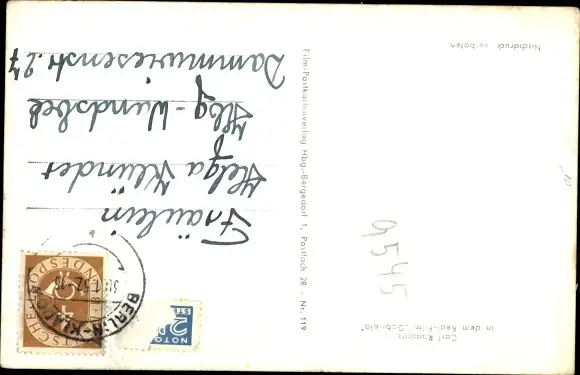 Carl Raddatz
in dem Real-Film "Gabriela"
9545
Film-Postkartenverlag Hbg.-Bergedorf 1, Postfach 28 - Nr. 119
Nachdruck verboten
NOTO
2
BERLIN-KLADOW
DEUTSCHE BUNDESPOST
Fräulein
Helga Klünder
Hbg-Wandsbek
Dammwiesenstr. 27